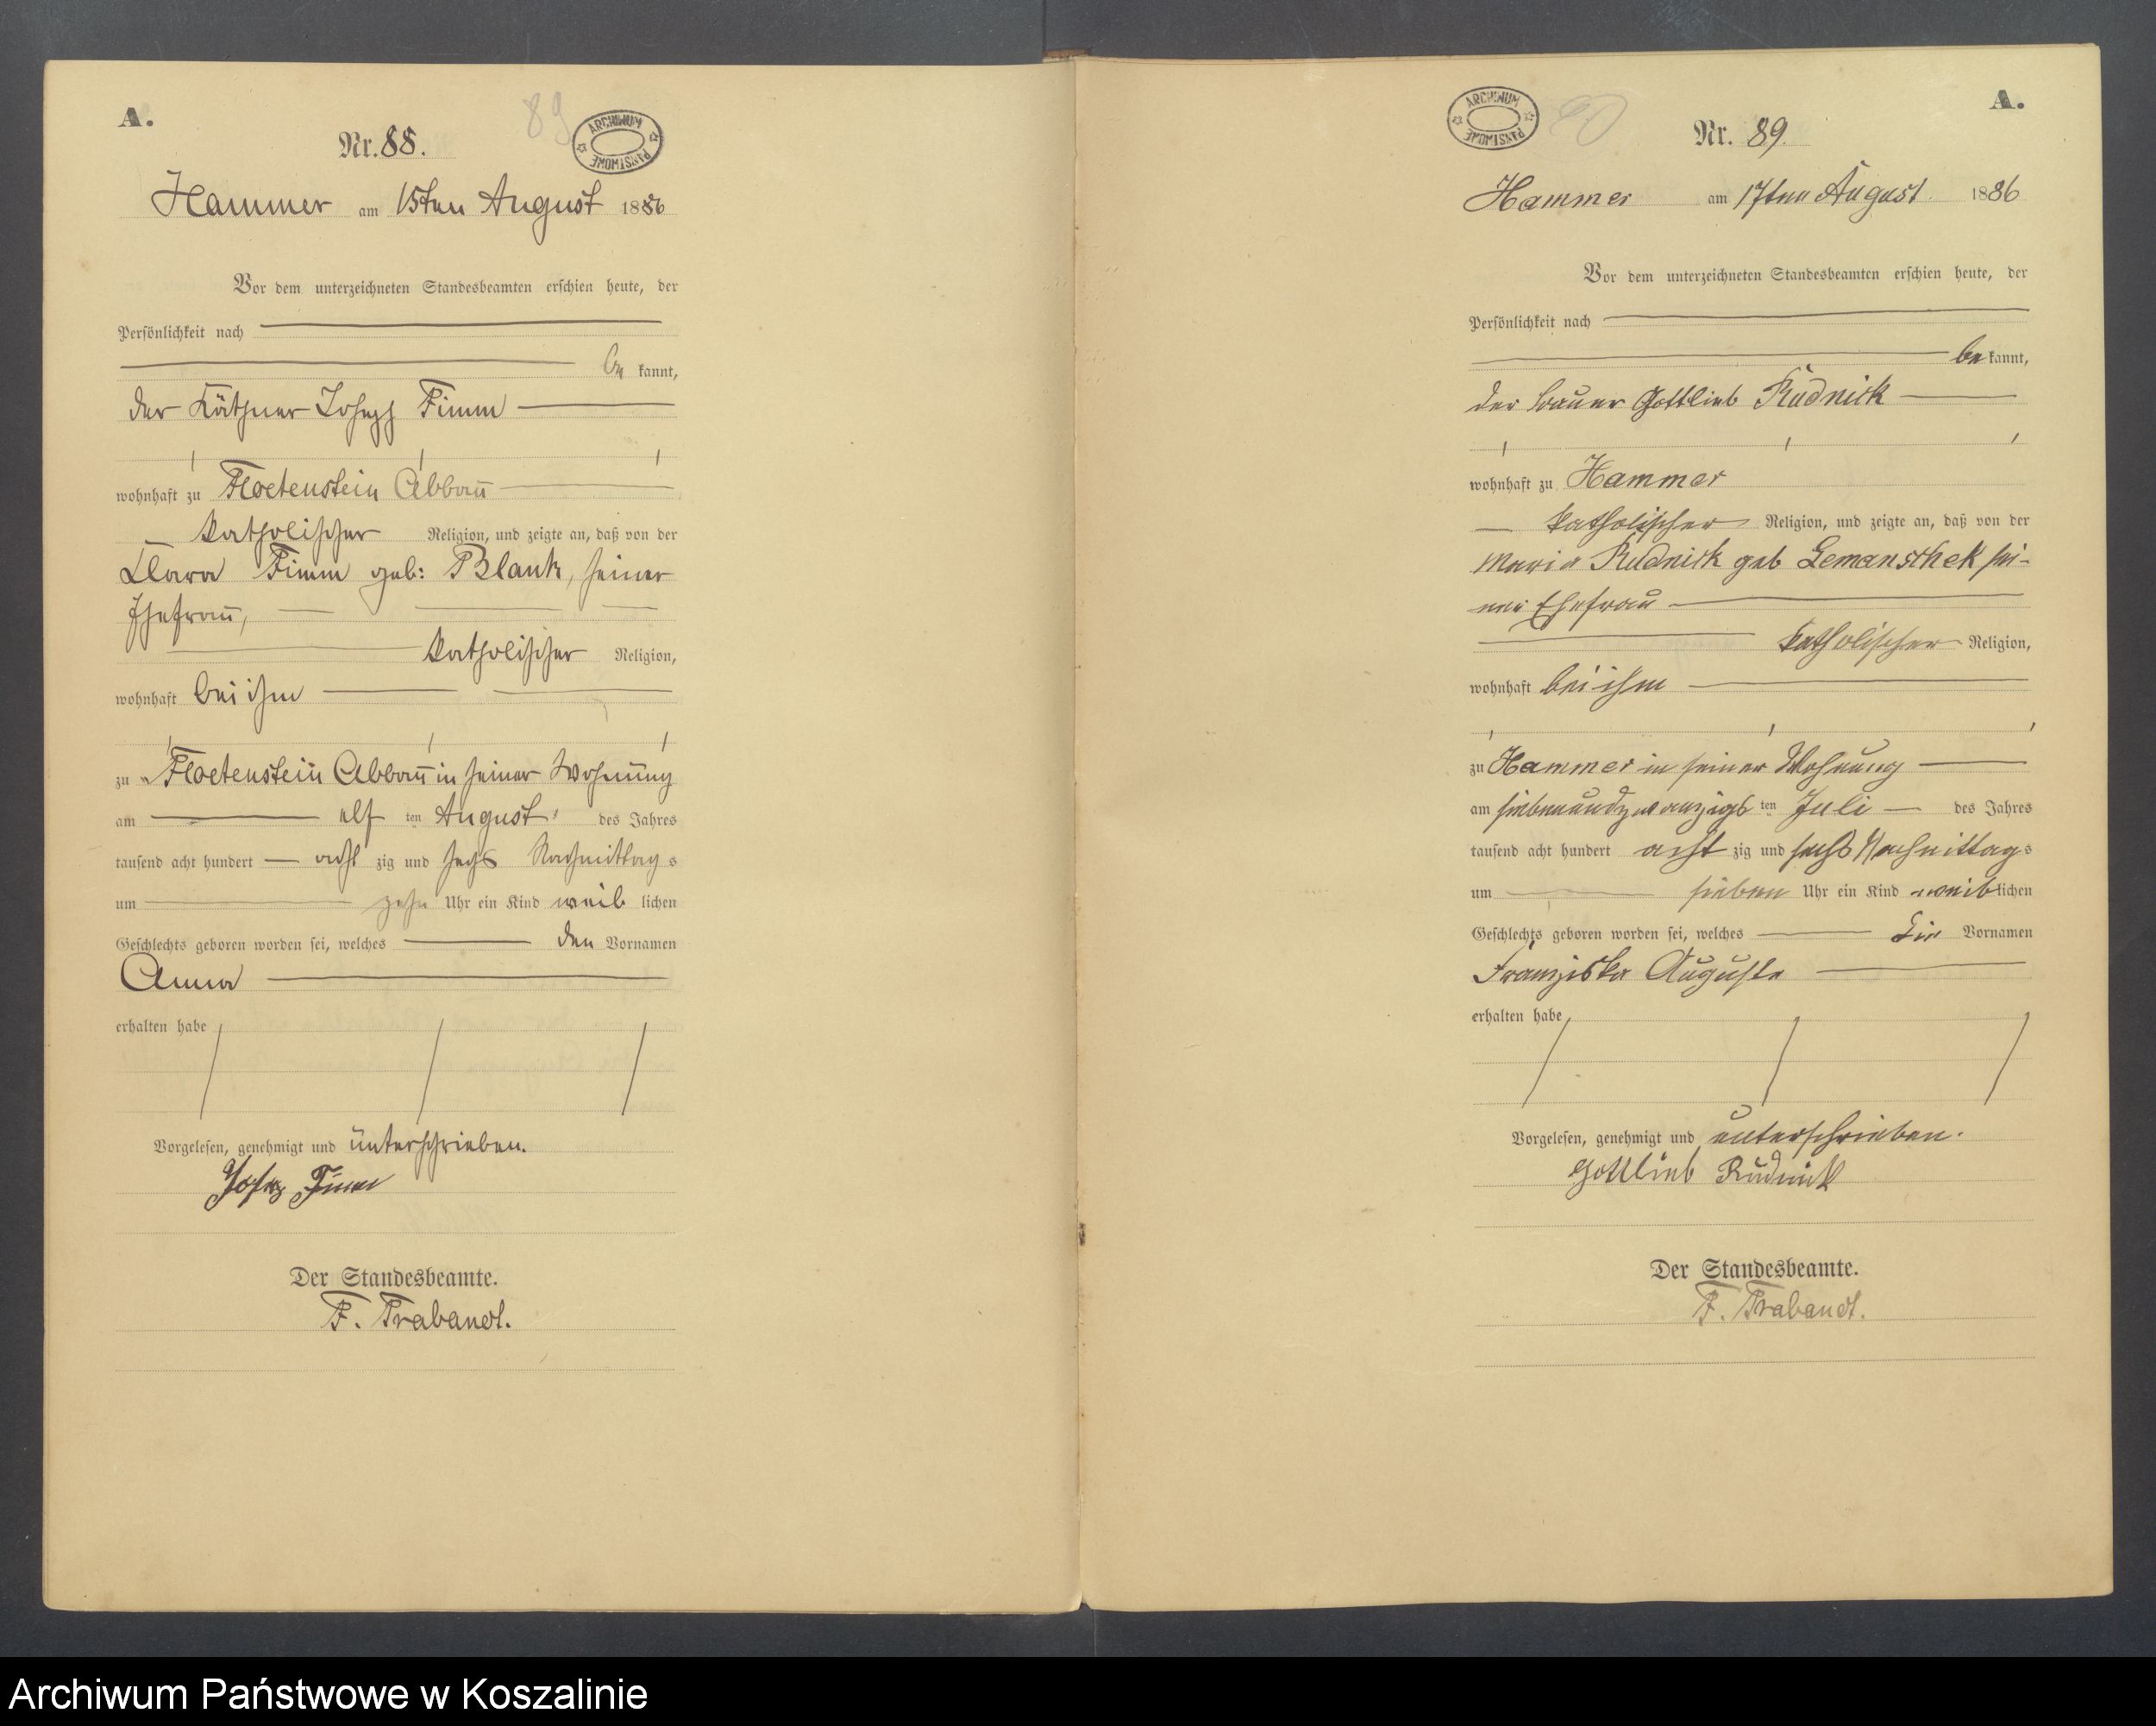 A.
89
ARCHIWUM PAŃSTWOWE
Nr. 88.
Hammer am 15ten August 1886
Vor dem unterzeichneten Standesbeamten erschien heute, der
Persönlichkeit nach
be kannt,
der Käthner Joseph Fimm
wohnhaft zu Floetenstein Abbau
katholischer Religion, und zeigte an, daß von der
Clara Fimm geb: Blank, seiner
Ehefrau,
katholischer Religion,
wohnhaft bei ihm
zu Floetenstein Abbau in seiner Wohnung
am elf ten August des Jahres
tausend acht hundert acht zig und sechs Nachmittags
um zehn Uhr ein Kind weib lichen
Geschlechts geboren worden sei, welches den Vornamen
Anna
erhalten habe
Vorgelesen, genehmigt und unterschrieben.
Josep Fimm
Der Standesbeamte.
F. Trabandt.
A.
ARCHIWUM PAŃSTWOWE
90
Nr. 89.
Hammer am 17ten August 1886
Vor dem unterzeichneten Standesbeamten erschien heute, der
Persönlichkeit nach
be kannt,
der Bauer Gottlieb Rudnick
wohnhaft zu Hammer
katholischer Religion, und zeigte an, daß von der
Maria Rudnick geb Lemanschek sei-
ner Ehefrau
katholischer Religion,
wohnhaft bei ihm
zu Hammer in seiner Wohnung
am siebenundzwanzigs ten Juli des Jahres
tausend acht hundert acht zig und sechs Nachmittags
um sieben Uhr ein Kind weib lichen
Geschlechts geboren worden sei, welches die Vornamen
Franziska Auguste
erhalten habe
Vorgelesen, genehmigt und unterschrieben.
Gottlieb Rudnick
Der Standesbeamte.
F. Trabandt.
Archiwum Państwowe w Koszalinie